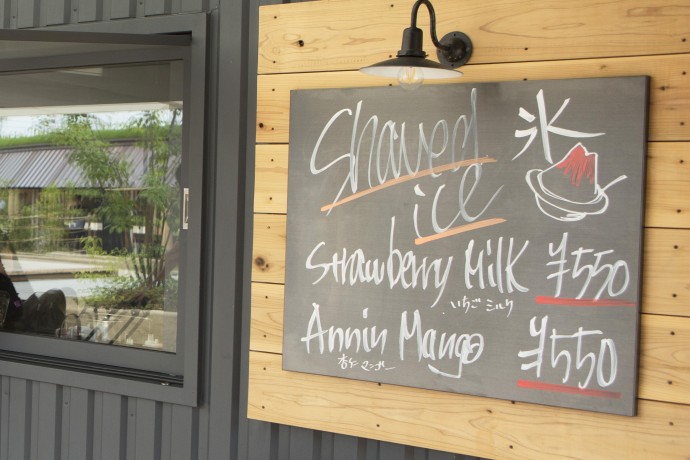 Shaved 氷
ice
Strawberry Milk ¥550
いちご ミルク
Annin Mango ¥550
杏仁 マンゴー